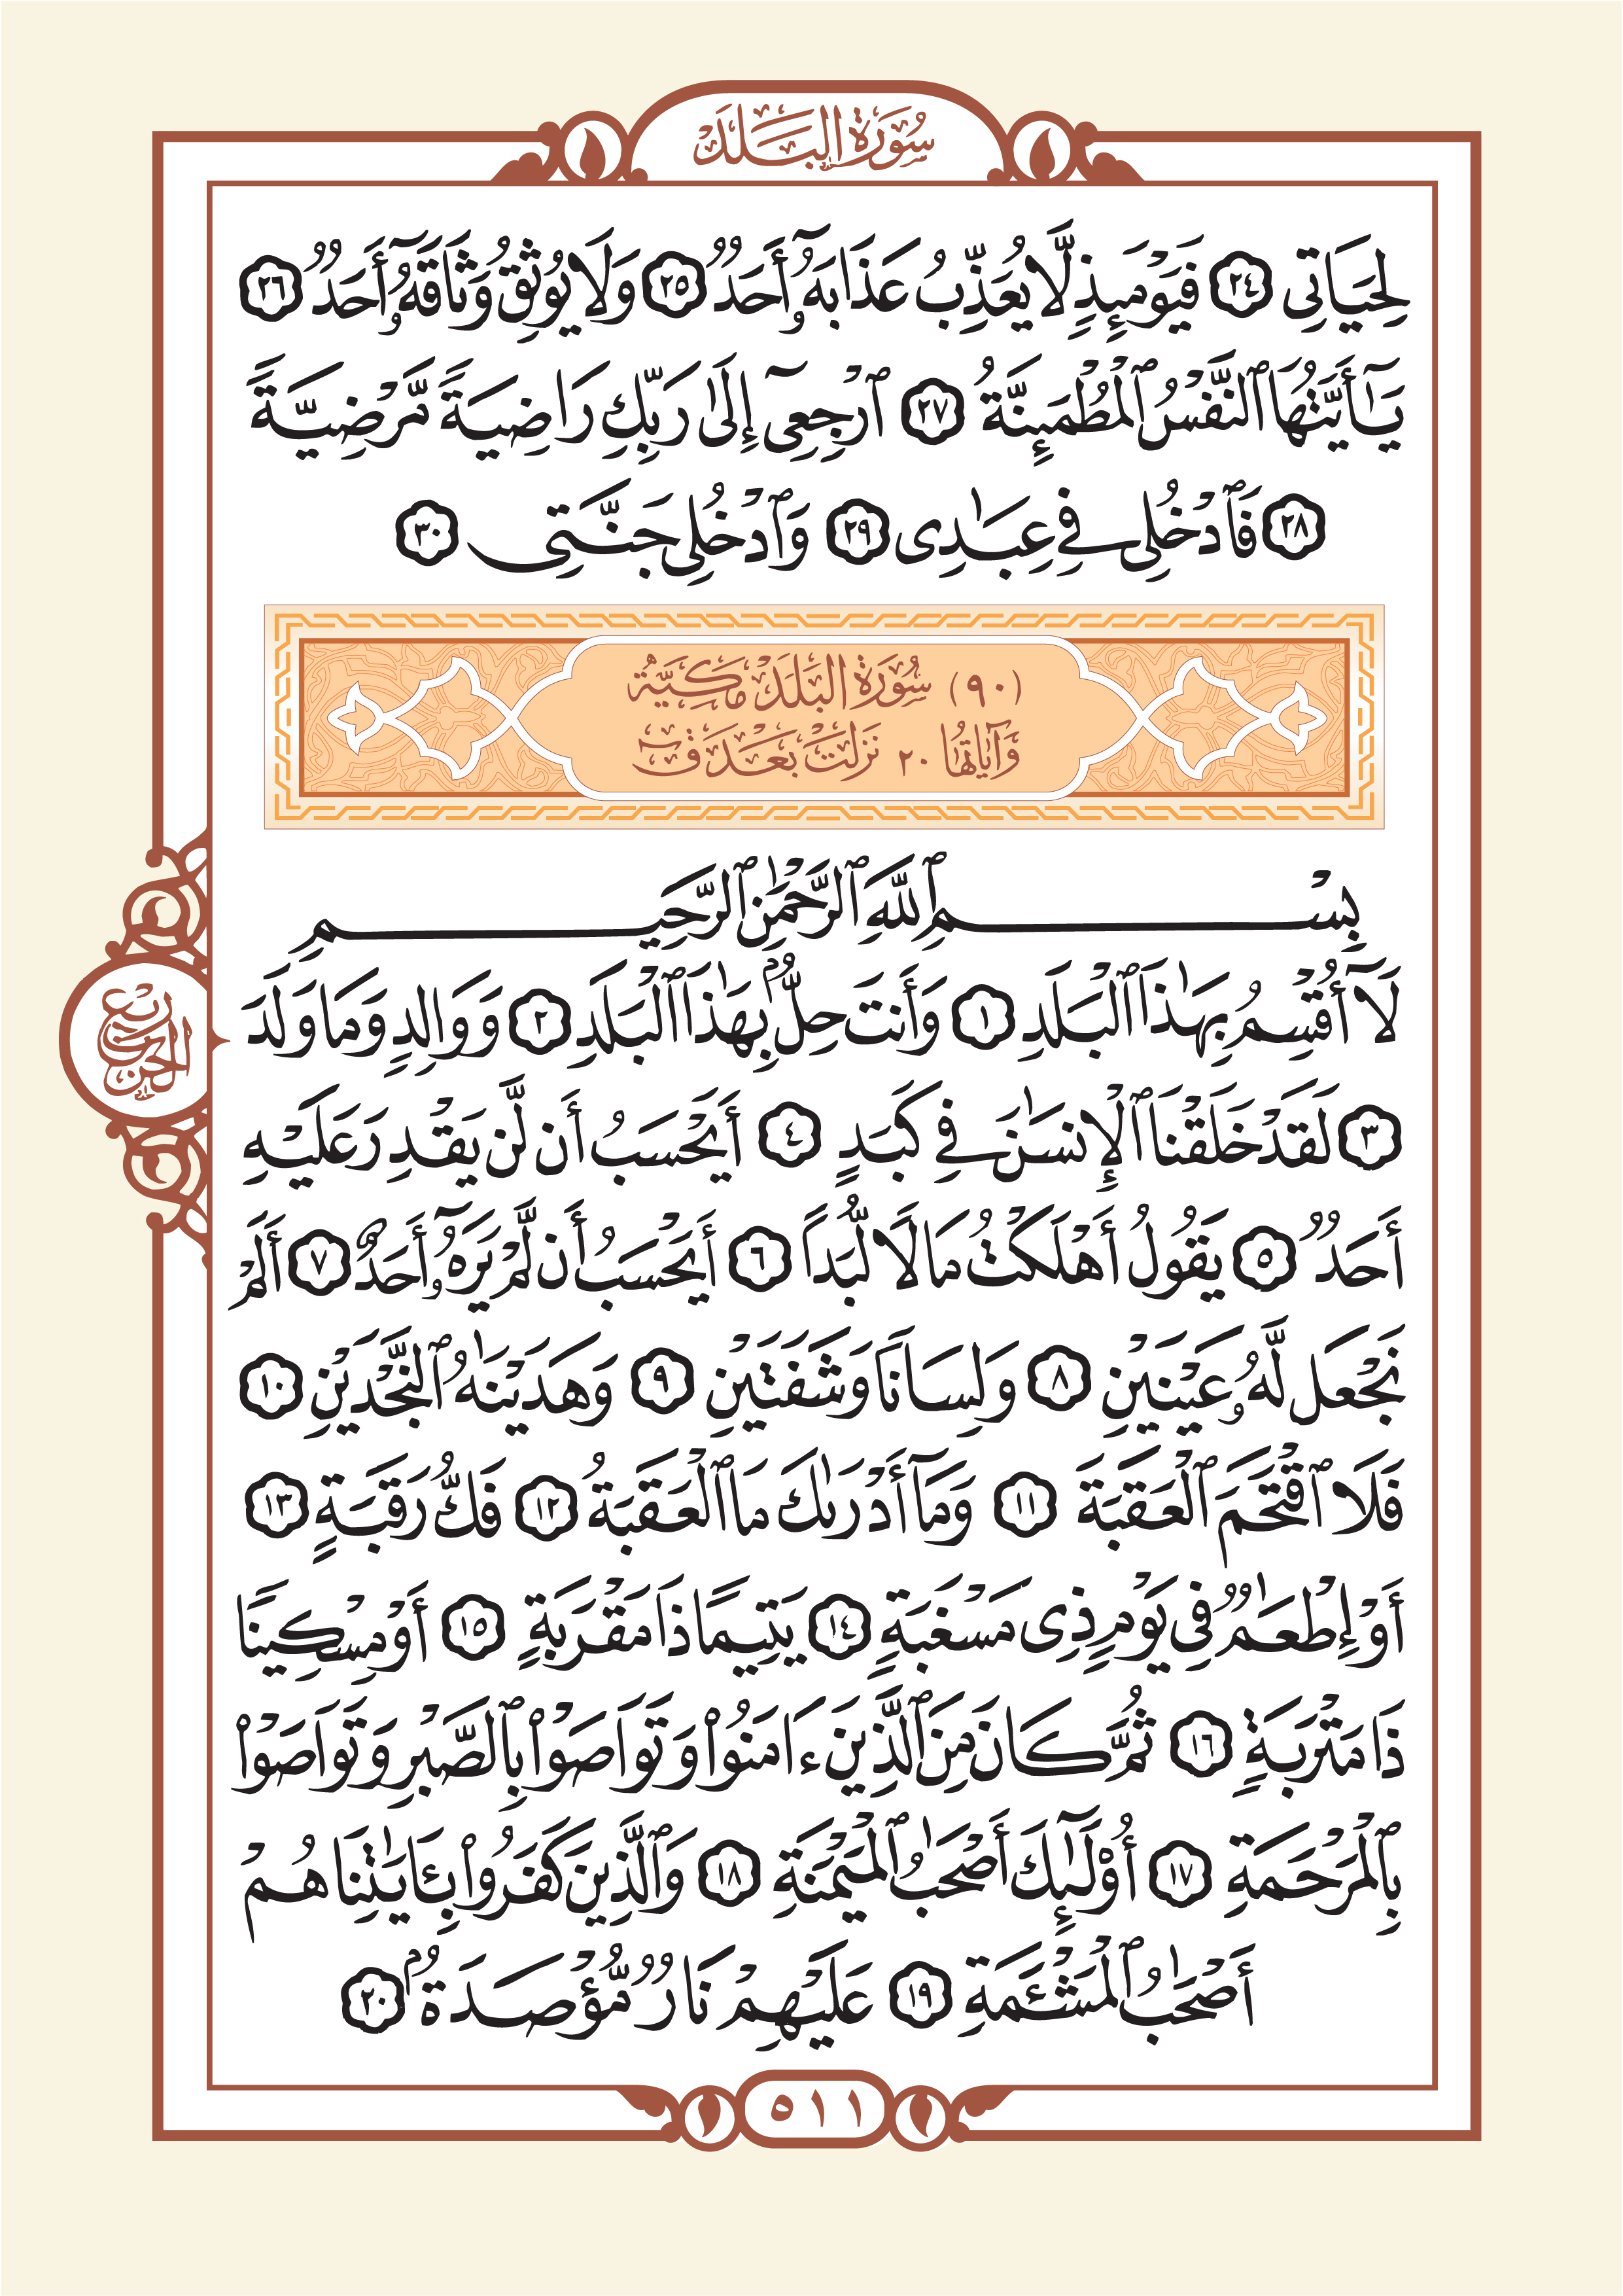 سُورَةُ الْبَلَدْ
لِحَيَاتِى ٢٤ فَيَوْمَئِذٍ لَّا يُعَذِّبُ عَذَابَهُۥٓ أَحَدٌ ٢٥ وَلَا يُوثِقُ وَثَاقَهُۥٓ أَحَدٌ ٢٦
يَٰٓأَيَّتُهَا ٱلنَّفْسُ ٱلْمُطْمَئِنَّةُ ٢٧ ٱرْجِعِىٓ إِلَىٰ رَبِّكِ رَاضِيَةً مَّرْضِيَّةً
٢٨ فَٱدْخُلِى فِى عِبَٰدِى ٢٩ وَٱدْخُلِى جَنَّتِى ٣٠
(٩٠) سُورَةُ الْبَلَدْ مَكِّيَّةُ
وَآيَاتُهَا ٢٠ نَزَلَتْ بَعْدَ قٓ
بِسْمِ ٱللَّهِ ٱلرَّحْمَٰنِ ٱلرَّحِيمِ
لَآ أُقْسِمُ بِهَٰذَا ٱلْبَلَدِ ١ وَأَنتَ حِلٌّۢ بِهَٰذَا ٱلْبَلَدِ ٢ وَوَالِدٍ وَمَا وَلَدَ
٣ لَقَدْ خَلَقْنَا ٱلْإِنسَٰنَ فِى كَبَدٍ ٤ أَيَحْسَبُ أَن لَّن يَقْدِرَ عَلَيْهِ
أَحَدٌ ٥ يَقُولُ أَهْلَكْتُ مَالًا لُّبَدًا ٦ أَيَحْسَبُ أَن لَّمْ يَرَهُۥٓ أَحَدٌ ٧ أَلَمْ
نَجْعَل لَّهُۥ عَيْنَيْنِ ٨ وَلِسَانًا وَشَفَتَيْنِ ٩ وَهَدَيْنَٰهُ ٱلنَّجْدَيْنِ ١٠
فَلَا ٱقْتَحَمَ ٱلْعَقَبَةَ ١١ وَمَآ أَدْرَىٰكَ مَا ٱلْعَقَبَةُ ١٢ فَكُّ رَقَبَةٍ ١٣
أَوْ إِطْعَٰمٌ فِى يَوْمٍ ذِى مَسْغَبَةٍ ١٤ يَتِيمًا ذَا مَقْرَبَةٍ ١٥ أَوْ مِسْكِينًا
ذَا مَتْرَبَةٍ ١٦ ثُمَّ كَانَ مِنَ ٱلَّذِينَ ءَامَنُوا۟ وَتَوَاصَوْا۟ بِٱلصَّبْرِ وَتَوَاصَوْا۟
بِٱلْمَرْحَمَةِ ١٧ أُو۟لَٰٓئِكَ أَصْحَٰبُ ٱلْمَيْمَنَةِ ١٨ وَٱلَّذِينَ كَفَرُوا۟ بِـَٔايَٰتِنَا هُمْ
أَصْحَٰبُ ٱلْمَشْـَٔمَةِ ١٩ عَلَيْهِمْ نَارٌ مُّؤْصَدَةٌۢ ٢٠
٥١١